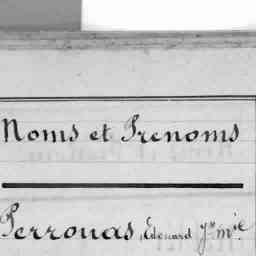 Noms et Prénoms
Perronas, Edouard, Jh mie